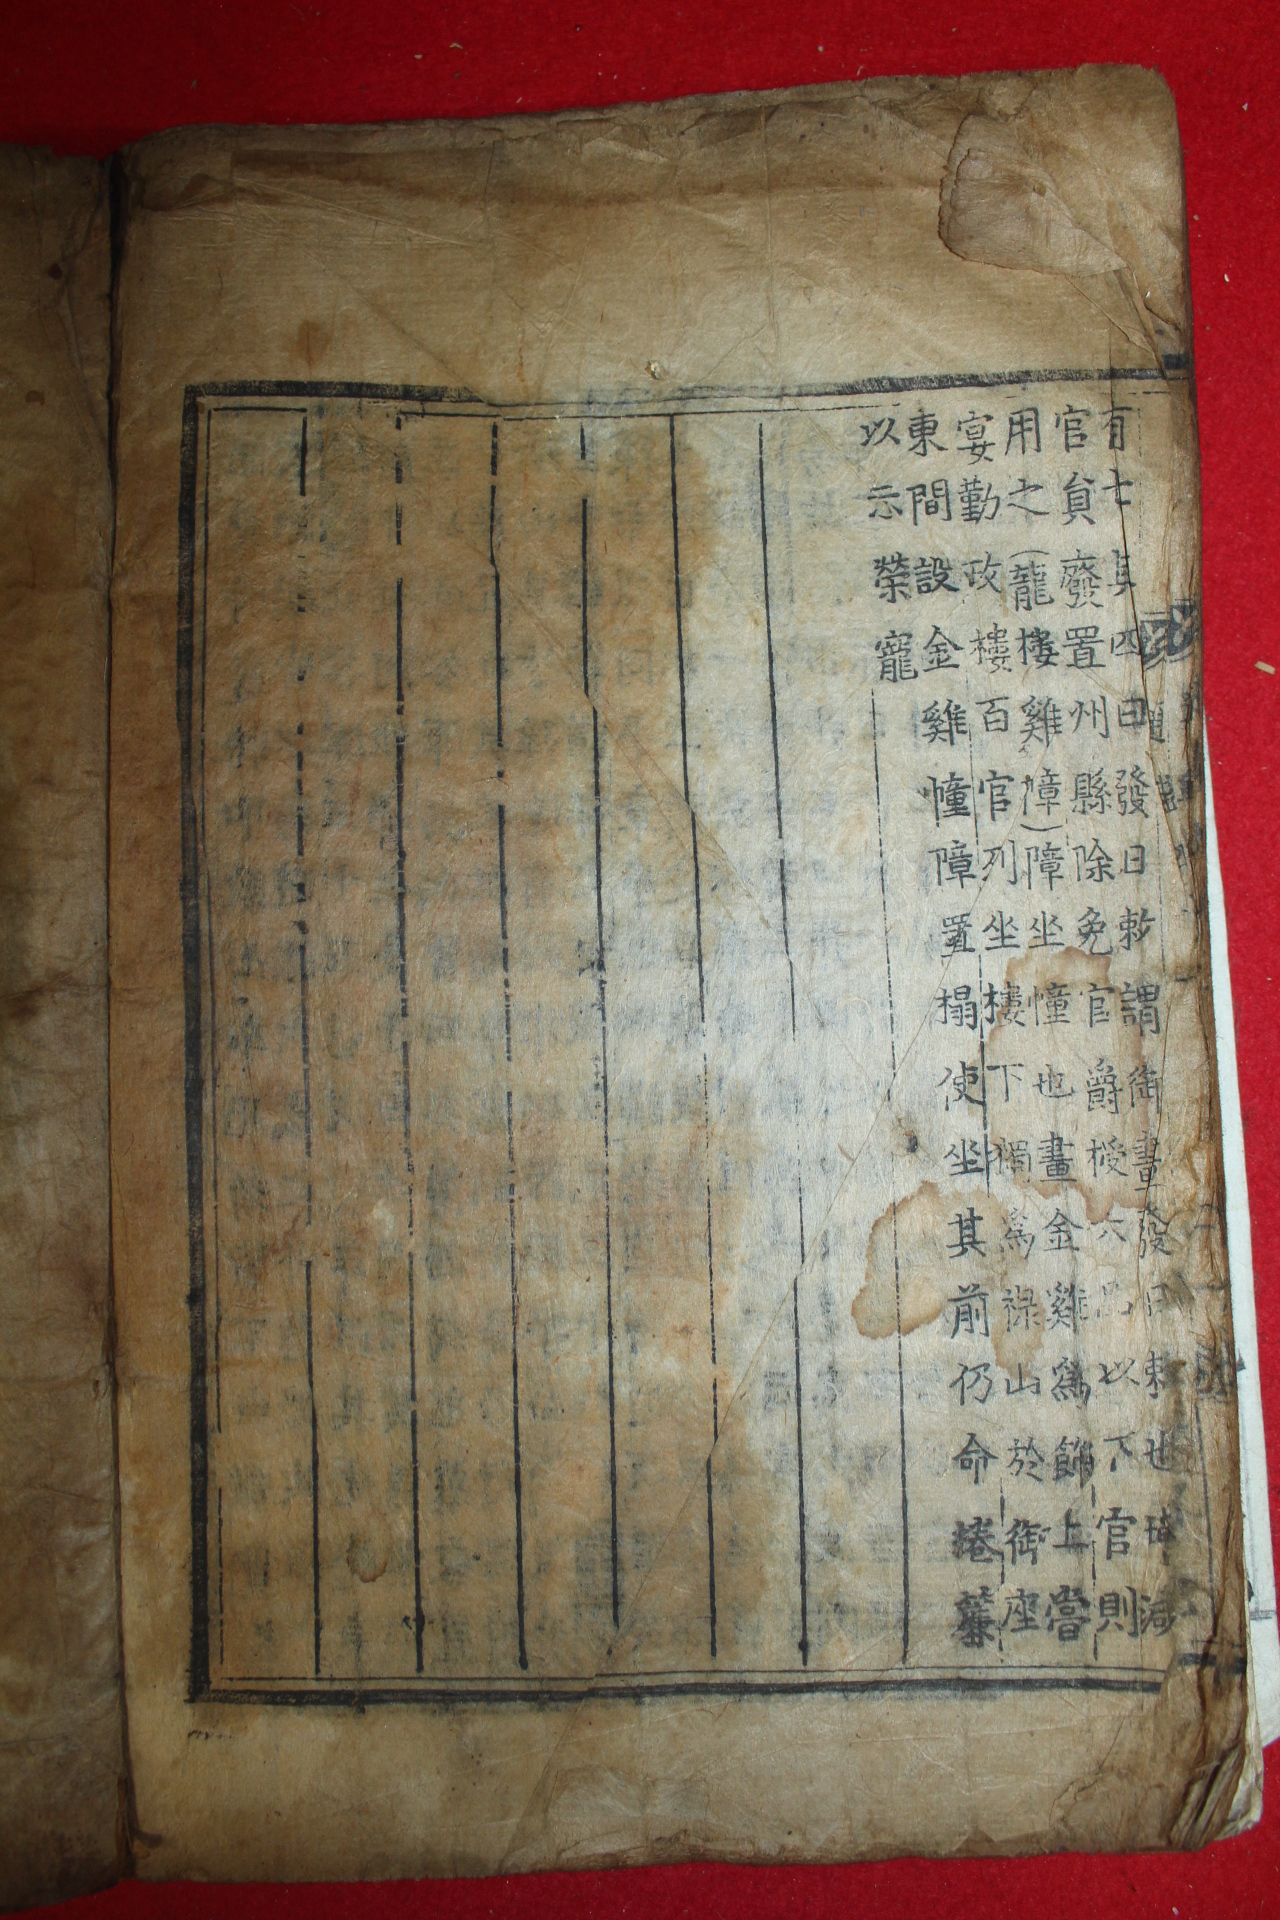 有七其四曰發日敕謂御畫發日敕也增減
官負廢置州縣除免官爵授六品以下官則
用之(龍樓雞幛)障坐幢也畫金雞爲飾上嘗
宴勤政樓百官列坐樓下獨爲祿山於御座
東間設金雞幢障置榻使坐其前仍命捲簾
以示榮寵